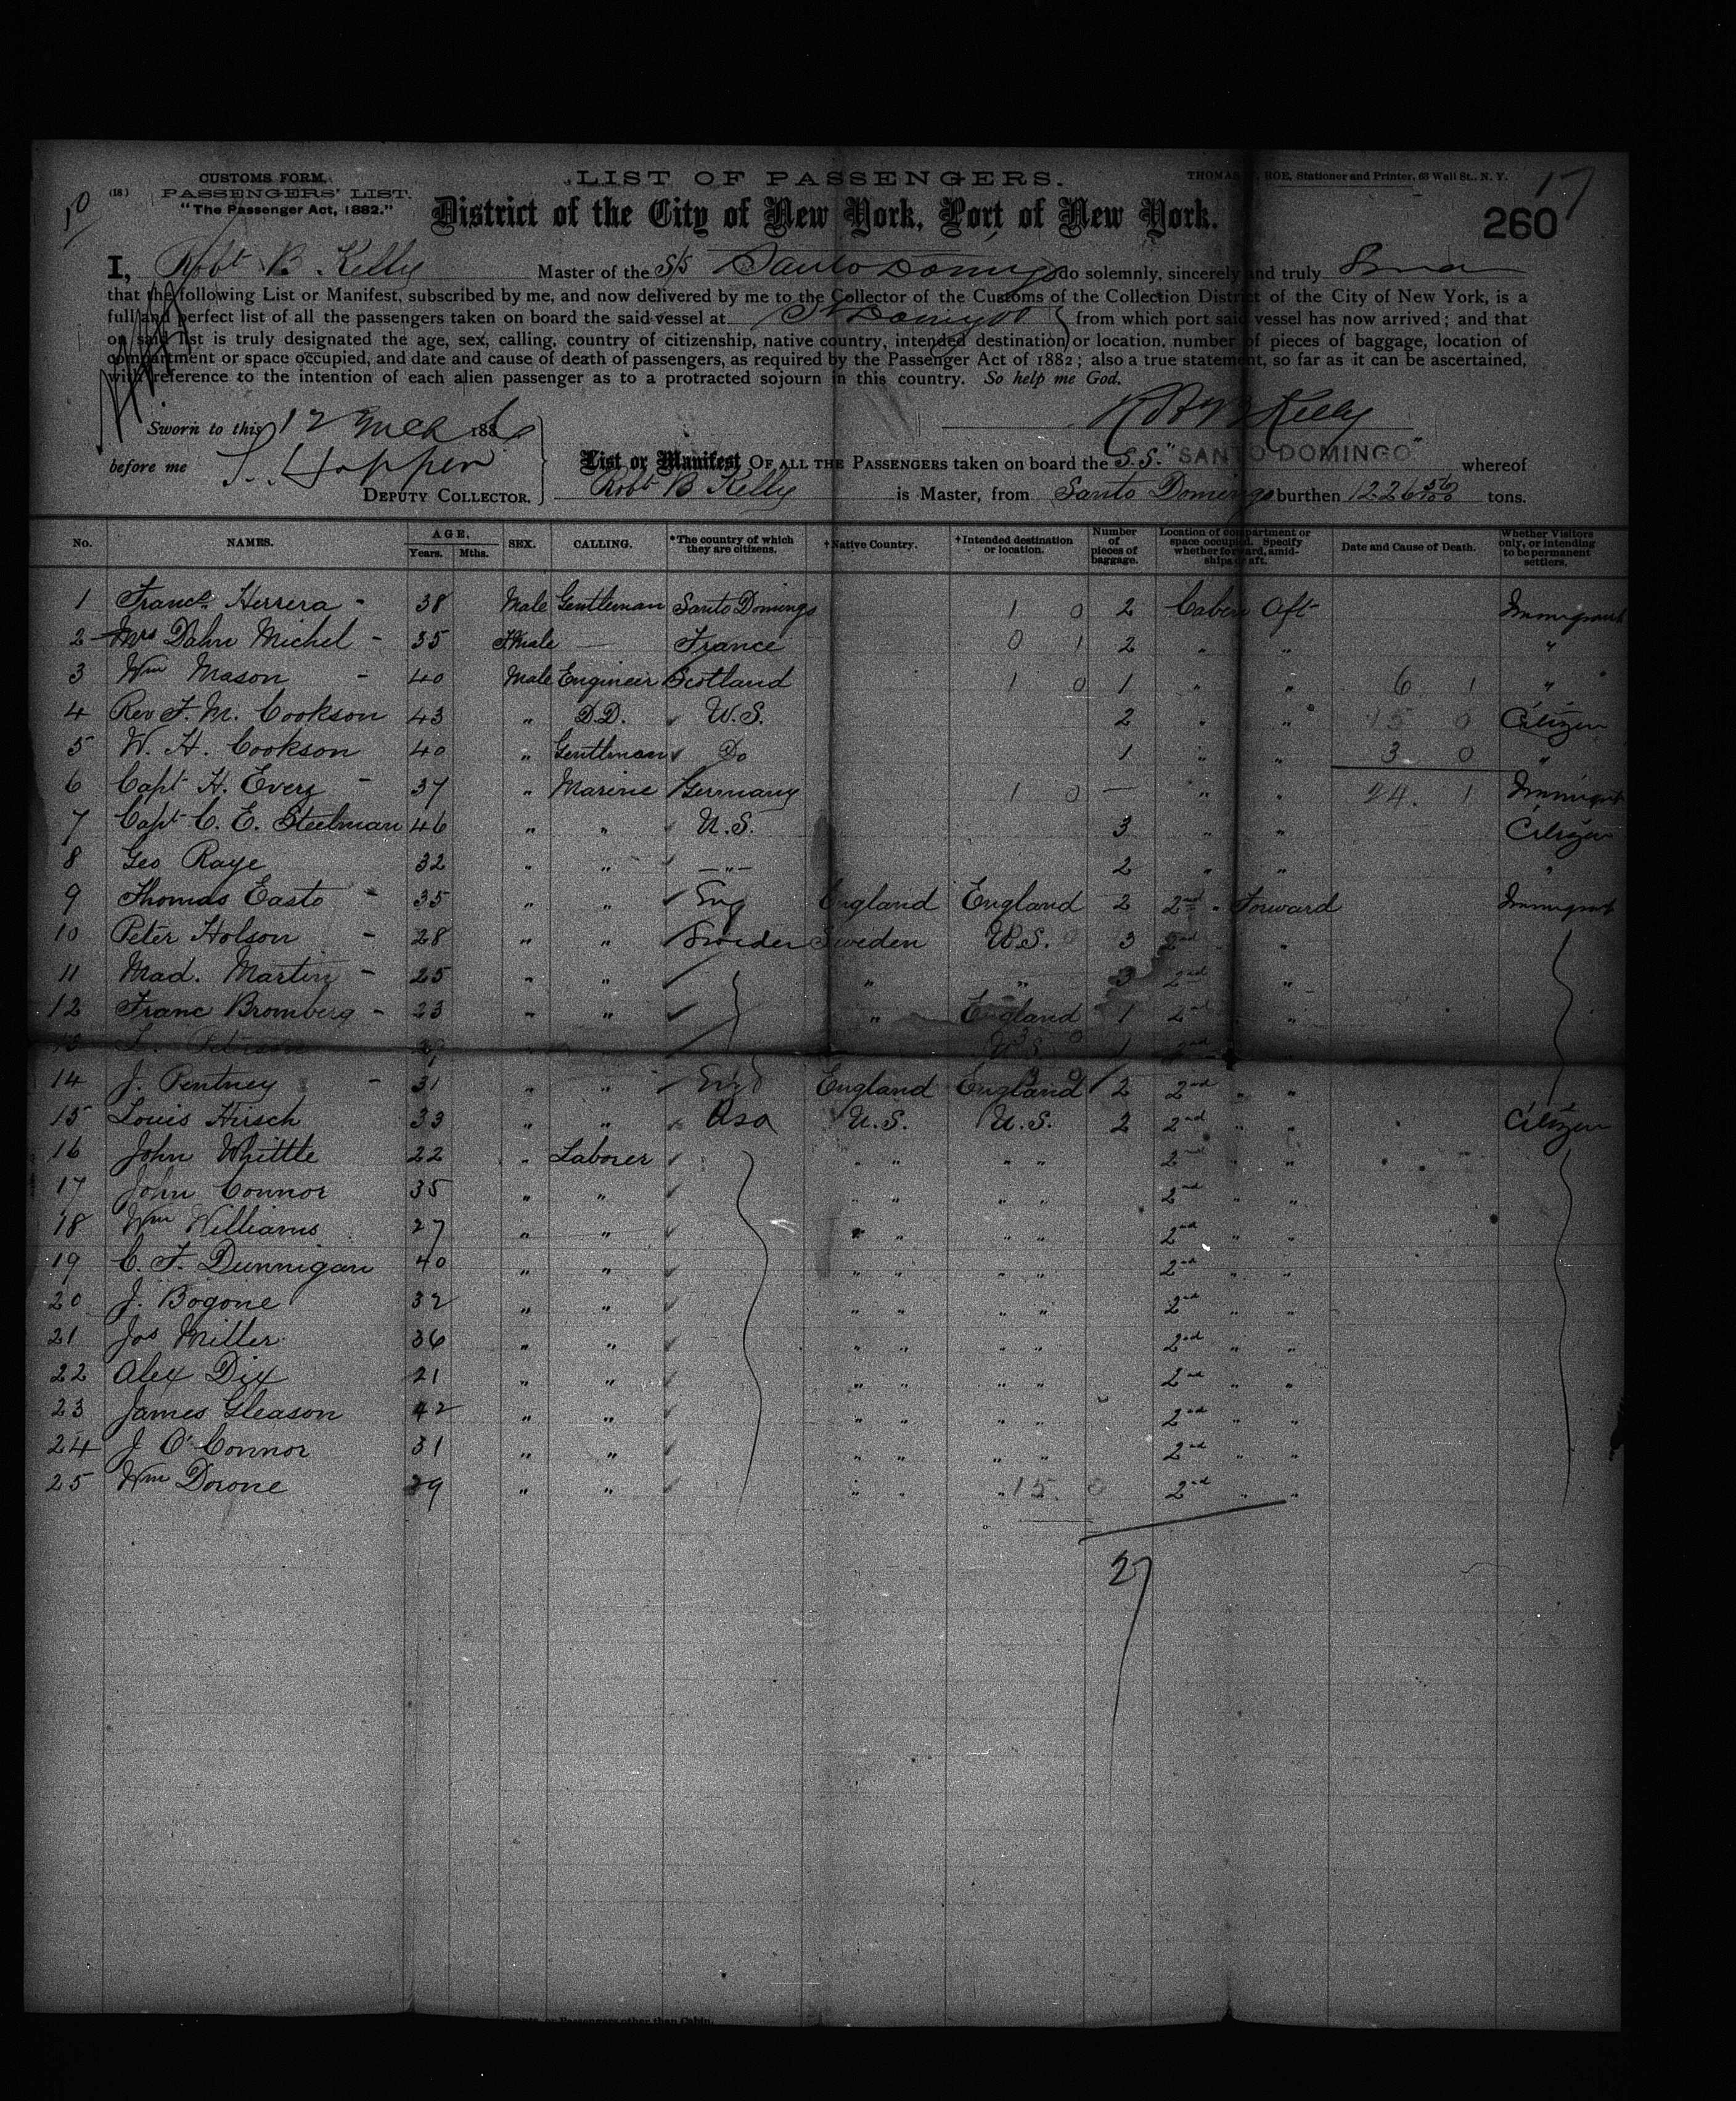 CUSTOMS FORM.
LIST OF PASSENGERS.
THOMAS ROE, Stationer and Printer, 63 Wall St., N. Y.
17
(18)
PASSENGERS' LIST.
"The Passenger Act, 1882."
District of the City of New York, Port of New York.
260
I, Robt B. Kelly Master of the S/S Santo Domingo do solemnly, sincerely and truly
that the following List or Manifest, subscribed by me, and now delivered by me to the Collector of the Customs of the Collection District of the City of New York, is a
full and perfect list of all the passengers taken on board the said vessel at St Domingo from which port said vessel has now arrived; and that
on said list is truly designated the age, sex, calling, country of citizenship, native country, intended destination or location, number of pieces of baggage, location of
compartment or space occupied, and date and cause of death of passengers, as required by the Passenger Act of 1882; also a true statement, so far as it can be ascertained,
with reference to the intention of each alien passenger as to a protracted sojourn in this country. So help me God.
Robt B Kelly
Sworn to this 12 March 188
before me S. Hopper
DEPUTY COLLECTOR.
List or Manifest OF ALL THE PASSENGERS taken on board the S.S. "SANTO DOMINGO" whereof
Robt B Kelly is Master, from Santo Domingo burthen 1226 56/100 tons.
No. NAMES. AGE. Years. Mths. SEX. CALLING. *The country of which they are citizens. †Native Country. †Intended destination or location. Number of pieces of baggage. Location of compartment or space occupied. Specify whether forward, amidships or aft. Date and Cause of Death. Whether Visitors only, or intending to be permanent settlers.
1 Franco Herrera - 38 Male Gentleman Santo Domingo 1 0 2 Cabin Aft Immigrant
2 Mrs Dahn Michel - 35 Female — France 0 1 2 " " "
3 Wm Mason - 40 Male Engineer Scotland 1 0 1 " " 6 1 "
4 Rev F. M. Cookson 43 " D.D. U.S. 2 " " 15 0 Citizen
5 W. H. Cookson 40 " Gentleman Do 1 " " 3 0 "
6 Capt H. Everz - 37 " Marine Germany 1 0 — " " 24. 1 Immigrant
7 Capt C. E. Steelman 46 " " U.S. 3 " " Citizen
8 Geo Raye 32 " " —"— 2 " " "
9 Thomas Easto - 35 " " Eng England England 2 2nd " Forward Immigrant
10 Peter Holson - 28 " " Sweden Sweden U.S. 3 2nd "
11 Mad. Martin - 25 " " " " 3 2nd "
12 Franc Bromberg - 23 " " " England 1 2nd "
13 L. U.S. 1 2nd
14 J. Pentney - 31 " " Eng England England 2 2nd " "
15 Louis Hirsch 33 " " Usa U.S. U.S. 2 2nd " " Citizen
16 John Whittle 22 " Laborer " " " " 2nd " "
17 John Connor 35 " " " " " " 2nd " "
18 Wm Williams 27 " " " " " " 2nd " "
19 C. F. Dunnigan 40 " " " " " " 2nd " "
20 J. Bogone 32 " " " " " " 2nd " "
21 Jos Miller 36 " " " " " " 2nd " "
22 Alex Dix 21 " " " " " " 2nd " "
23 James Gleason 42 " " " " " " 2nd " "
24 J O'Connor 31 " " " " " " 2nd " "
25 Wm Dorone 29 " " " " " 15 0 2nd " "
27